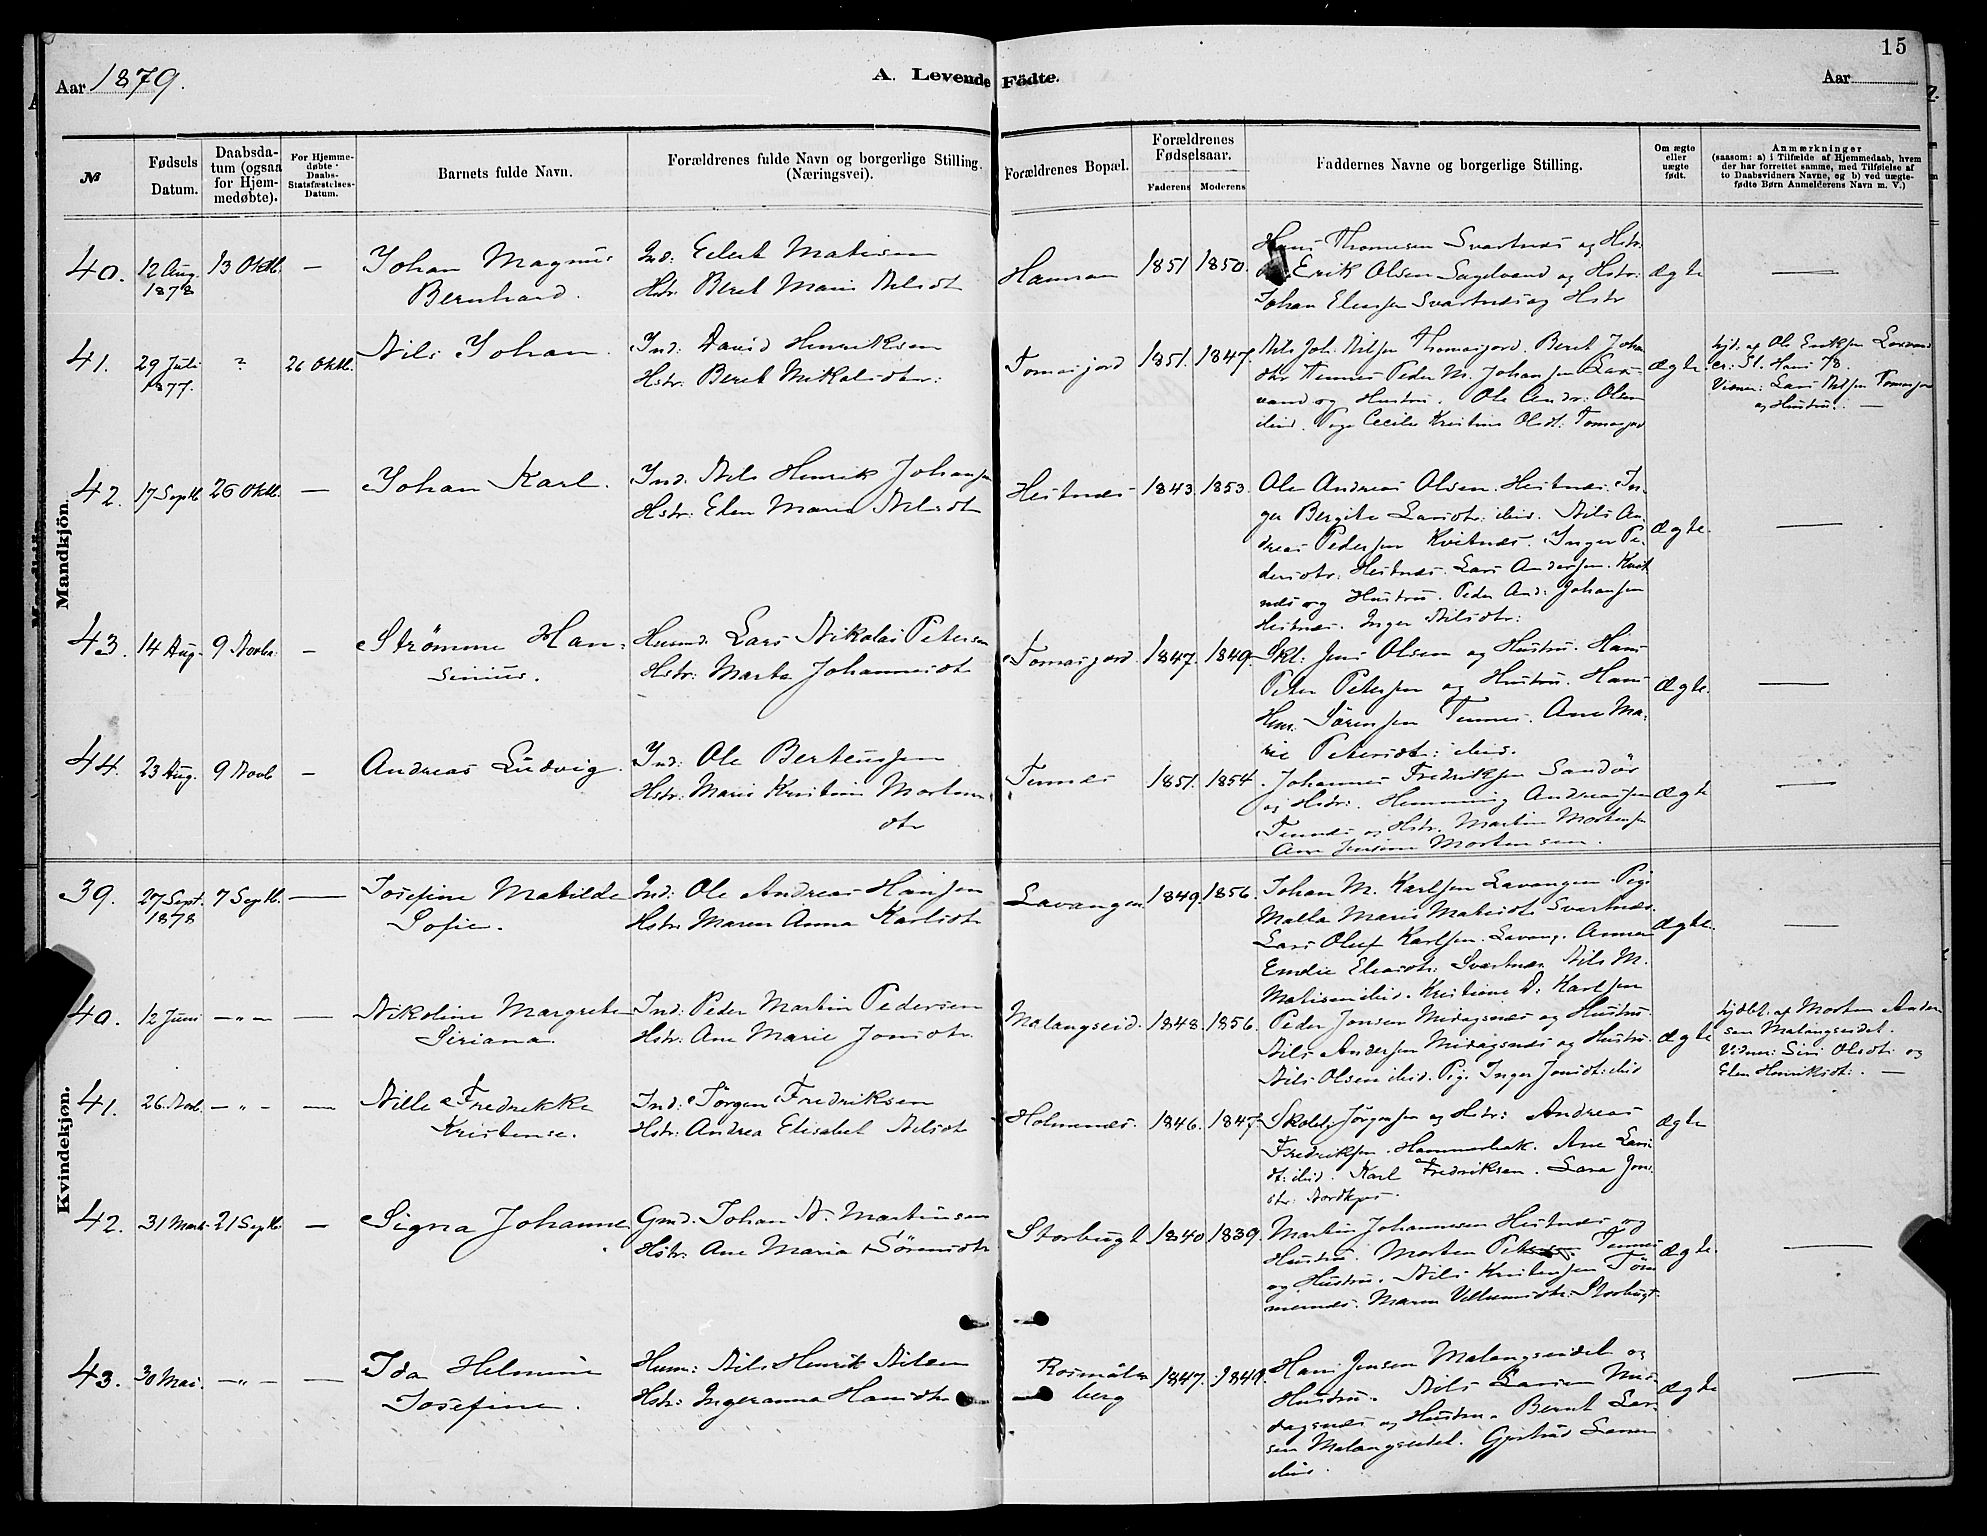 15
Aar 1879.
A. Levende Födte.
Aar
№
Fødsels Datum.
Daabsda-tum (ogsaa for Hjem-medøbte).
For Hjemme-døbte Daabs-Statsfæstelses-Datum.
Barnets fulde Navn.
Forældrenes fulde Navn og borgerlige Stilling. (Næringsvei).
Forældrenes Bopæl.
Forældrenes Fødselsaar.
Faderens
Moderens
Faddernes Navne og borgerlige Stilling.
Om ægte eller uægte født.
Anmærkninger
(saasom: a) i Tilfælde af Hjemmedaab, hvem
der har forrettet samme, med Tilføielse af
to Daabsvidners Navne, og b) ved uægte-
fødte Børn Anmelderens Navn m. V.)
Mandkjön.
40. 12 Aug. 1878 13 Oktb. — Johan Magnus
Bernhard.
Ind: Eilert Matisen
Hstr. Beret Maris Nilsdt
Hamran 1851 1850.
Hans Thomesen Svartnes og Hstr.
Erik Olsen Sagelvand og Hstr:
Johan Eliasen Svartnes og Hstr
ægte —
41. 29 Juli 1877. ? 26 Oktb. Nils Johan.
Ind: David Henriksen
Hstr. Beret Mikalsdtr:
Tomasjord 1851. 1847.
Nils Joh. Nilsen Thomasjord. Beret Johan
dtr Tennes Peder M. Johansen
og Hustru. Ole Andr: Olsen
ibid. Pige Cecilie Kristine Olsdt. Tomasjord
ægte
hjd. af Ole Eriksen
St. Hans 78.
Vidner: Lars Nilsen Tomasjord
og Hustru. —
42. 17 Septb. 26 Oktb. — Johan Karl.
Ind. Nils Henrik Johansen
Hstr: Elen Maria Nilsdt
Hestnes 1843. 1853.
Ole Andreas Olsen. Hestnes. In-
ger Bergite Larsdtr: ibid. Nils An-
dreas Pedersen Kvitnes. Inger Pe-
dersdtr. Hestnes. Lars Andersen. Kvit
nes og Hustru. Peder And: Johansen
Hestnes. Inger Nilsdtr:
ægte. —
43. 14 Aug. 9 Novbr. — Strømme Han-
sinius.
Husmd. Lars Nikolai Petersen
Hstr: Marta Johannesdt
Tomasjord. 1847. 1849.
Skl: Jens Olsen og Hustru. Hans
Peter Petersen og Hustru. Hans
Hem. Sørensen Tennes. Ane Ma-
rie Petersdtr: ibid.
ægte. —
44. 23 Aug. 9 Novb — Andreas Ludvig.
Ind: Ole Berteussen
Hstr: Maris Kristine Mortens
dtr
Tennes 1851. 1854.
Johannes Fredriksen Sandör
og Hstr. Hemming Andreasen
Tennes og Hstr. Martin Mortensen
Ane Jensine Mortensen.
ægte —
Kvindekjön.
39. 27 Sept. 1878 7 Septb. — Josefine Matilde
Sofie.
Ind: Ole Andreas Hansen
Hstr. Maren Anna Karlsdtr
Lavangen 1849. 1856.
Johan M. Karlsen Lavangen. Pig.
Malla Maris Matisdt. Svartnes.
Lars Oluf Karlsen. Lavang. Anna
Emelie Eliasdtr: Svartnes Nils M.
Matisen ibid. Kristiane D. Karlsen
ægte. —
40. 12 Juni —"— — Nikoline Margrete
Siriana.
Ind: Peder Martin Pedersen
Hstr: Ane Marie Jonsdtr.
Malangseid. 1848. 1856.
Peder Jonsen Middagsnes og Hustru.
Nils Andersen Middagsnes og Hustru.
Nils Olsen ibid. Pig. Inger Jonsdt: ibid
ægte
hjdbt. af Morten Ander
sen Malangseidet.
Vidner: Siri Olsdt: og
Elen Henriksdt: —
41. 26 Novb. —"— — Nille Fredrikke
Kristense.
Ind: Jørgen Fredriksen
Hstr: Andrea Elisabet Nilsdt
Holmenes. 1846. 1847.
Skolel. Jørgensen og Hstr: Andreas
Fredriksen. Hammerbak. Ane Lars
dt: ibid. Karl Fredriksen. Sara Jons
dtr: Nordkjos.
ægte
42. 31 Marts 21 Septb. — Signa Johanne
Gmd. Johan N. Martinsen
Hstr: Ane Maria Sørensdtr
Storbugt 1840 1839.
Martin Johannesen Hestnes og
Hustru. Morten Petersen. Tennes
og Hustru. Nils Kristensen Töm
mernes. Maren Villumsdtr: Storbugt.
ægte. —
43. 30 Mai. —"— — Ida Helmine
Josefine.
Husm: Nils Henrik Nilsen
Hstr: Ingeranna Hansdtr
Rosmåls
berg 1847. 1849.
Hans Jensen Malangseidet og
Hustru. Nils Larsen Mid-
dagsnes og Hustru. Bernt Lar-
sen Malangseidet. Gjertrud Larsen
ibid.
ægte —